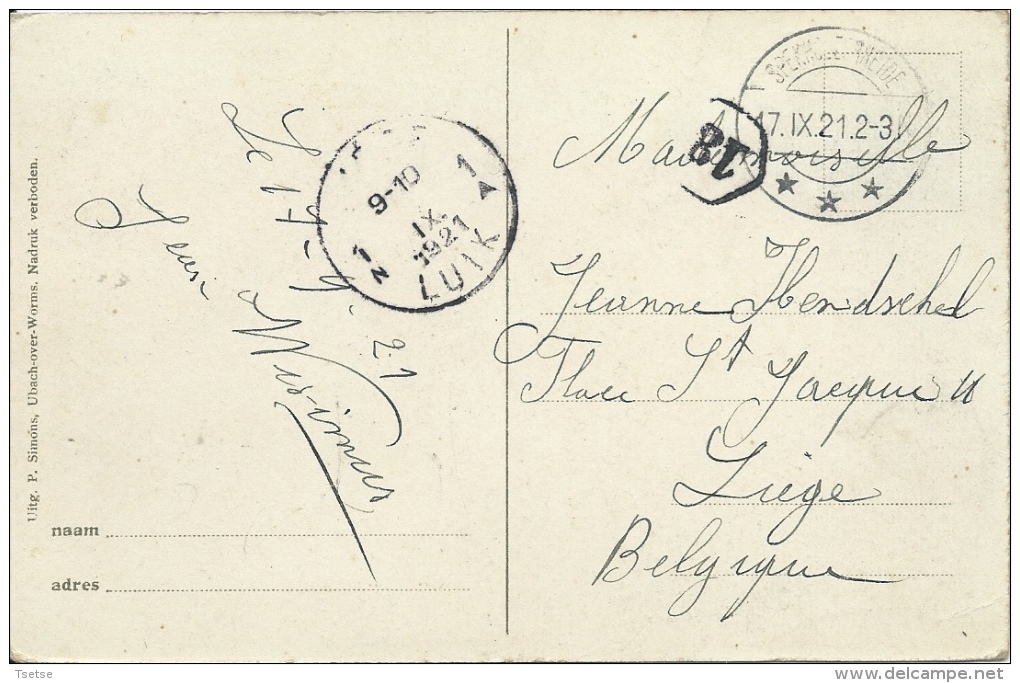 Uitg. P. Simons, Ubach-over-Worms. Nadruk verboden.
Le 17-9-21
Jean
naam
adres
1
9-10
IX.
1921
LUIK
18
17.IX.21.2-3
Mademoiselle
Jeanne Hendschel
Place St Jacques 11
Liège
Belgique
Tsetse
www.delcampe.net